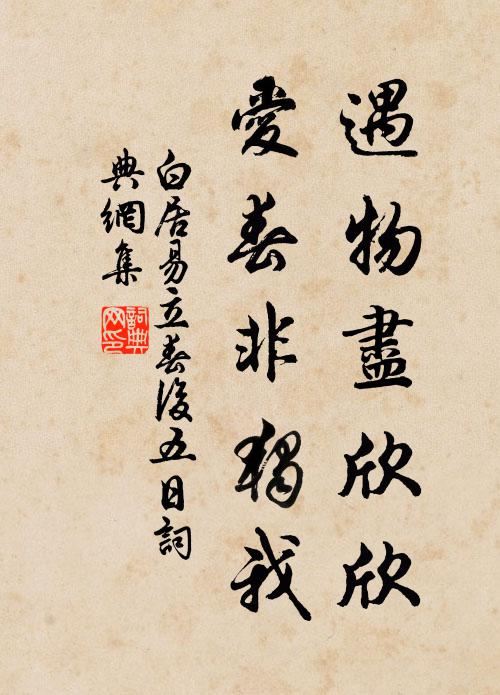 遇物盡欣欣
愛春非獨我
白居易立春後五日詞
典網集
詞典网印